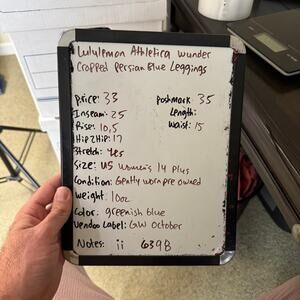 Lululemon Athletica wunder
Cropped Persian Blue Leggings
Price: 33
Postmark: 35
Inseam: 25
Length:
Rise: 10,5
Waist: 15
Hip2Hip: 17
Stretch: Yes
Size: US women's 14 plus
Condition: Gently worn pre owned
Weight: 10oz
Color: greenish blue
Vendoo Label: GW October
Notes: ii 639B